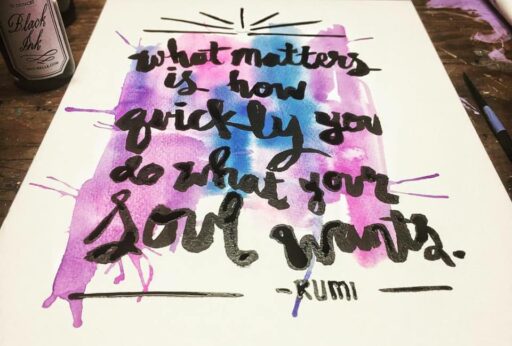 Black
Ink
what matters
is how
quickly you
do what your
soul wants.
-RUMI